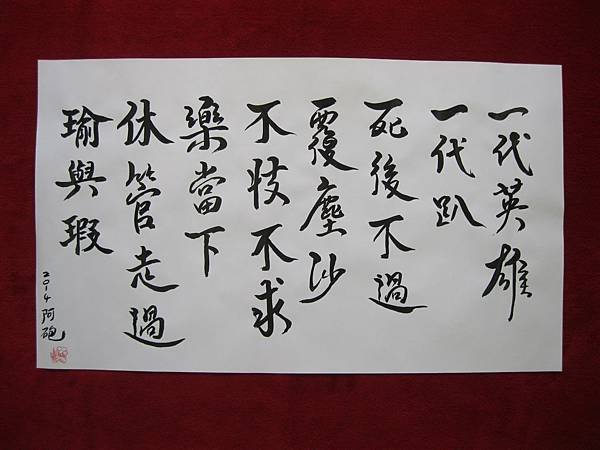 一代英雄
一代趴
死後不過
覆塵沙
不忮不求
樂當下
休管走過
瑜與瑕
2014阿砲